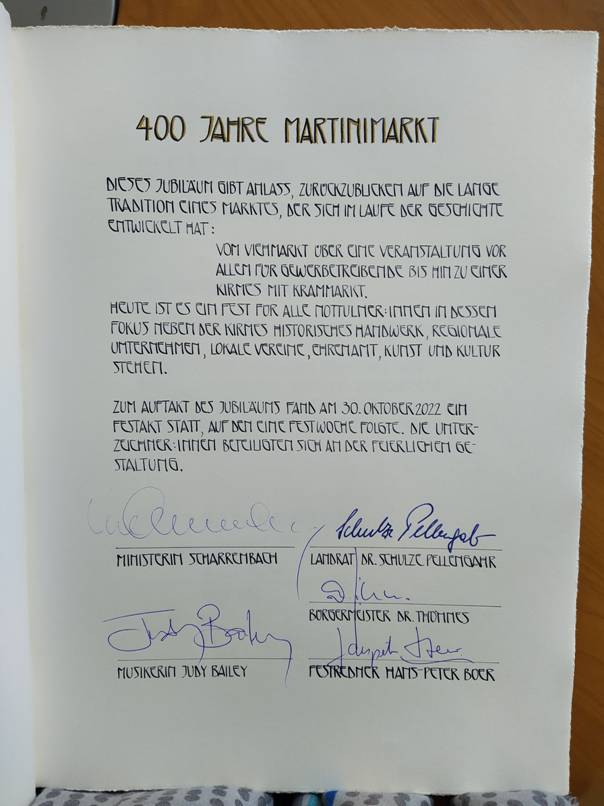 400 JAHRE MARTINIMARKT
DIESES JUBILÄUM GIBT ANLASS, ZURÜCKZUBLICKEN AUF DIE LANGE
TRADITION EINES MARKTES, DER SICH IM LAUFE DER GESCHICHTE
ENTWICKELT HAT:
VOM VIEHMARKT ÜBER EINE VERANSTALTUNG VOR
ALLEM FÜR GEWERBETREIBENDE BIS HIN ZU EINER
KIRMES MIT KRAMMARKT.
HEUTE IST ES EIN FEST FÜR ALLE NOTTULNER:INNEN IN DESSEN
FOKUS NEBEN DER KIRMES HISTORISCHES HANDWERK, REGIONALE
UNTERNEHMEN, LOKALE VEREINE, EHRENAMT, KUNST UND KULTUR
STEHEN.
ZUM AUFTAKT DES JUBILÄUMS FAND AM 30. OKTOBER 2022 EIN
FESTAKT STATT, AUF DEN EINE FESTWOCHE FOLGTE. DIE UNTER-
ZEICHNER:INNEN BETEILIGTEN SICH AN DER FEIERLICHEN GE-
STALTUNG.
Schulze Pellengahr
MINISTERIN SCHARRENBACH
LANDRAT DR. SCHULZE PELLENGAHR
BÜRGERMEISTER DR. THÖNNES
Judy Bailey
MUSIKERIN JUDY BAILEY
FESTREDNER HANS-PETER BOER